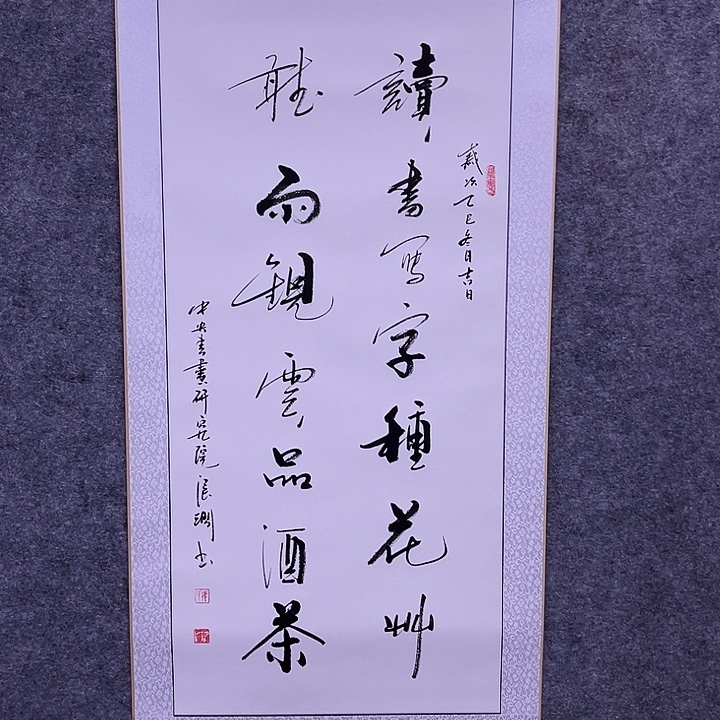 歲次乙巳冬月吉日
讀書寫字種花艸
聴雨觀雲品酒茶
中央書畫研究院張潤书